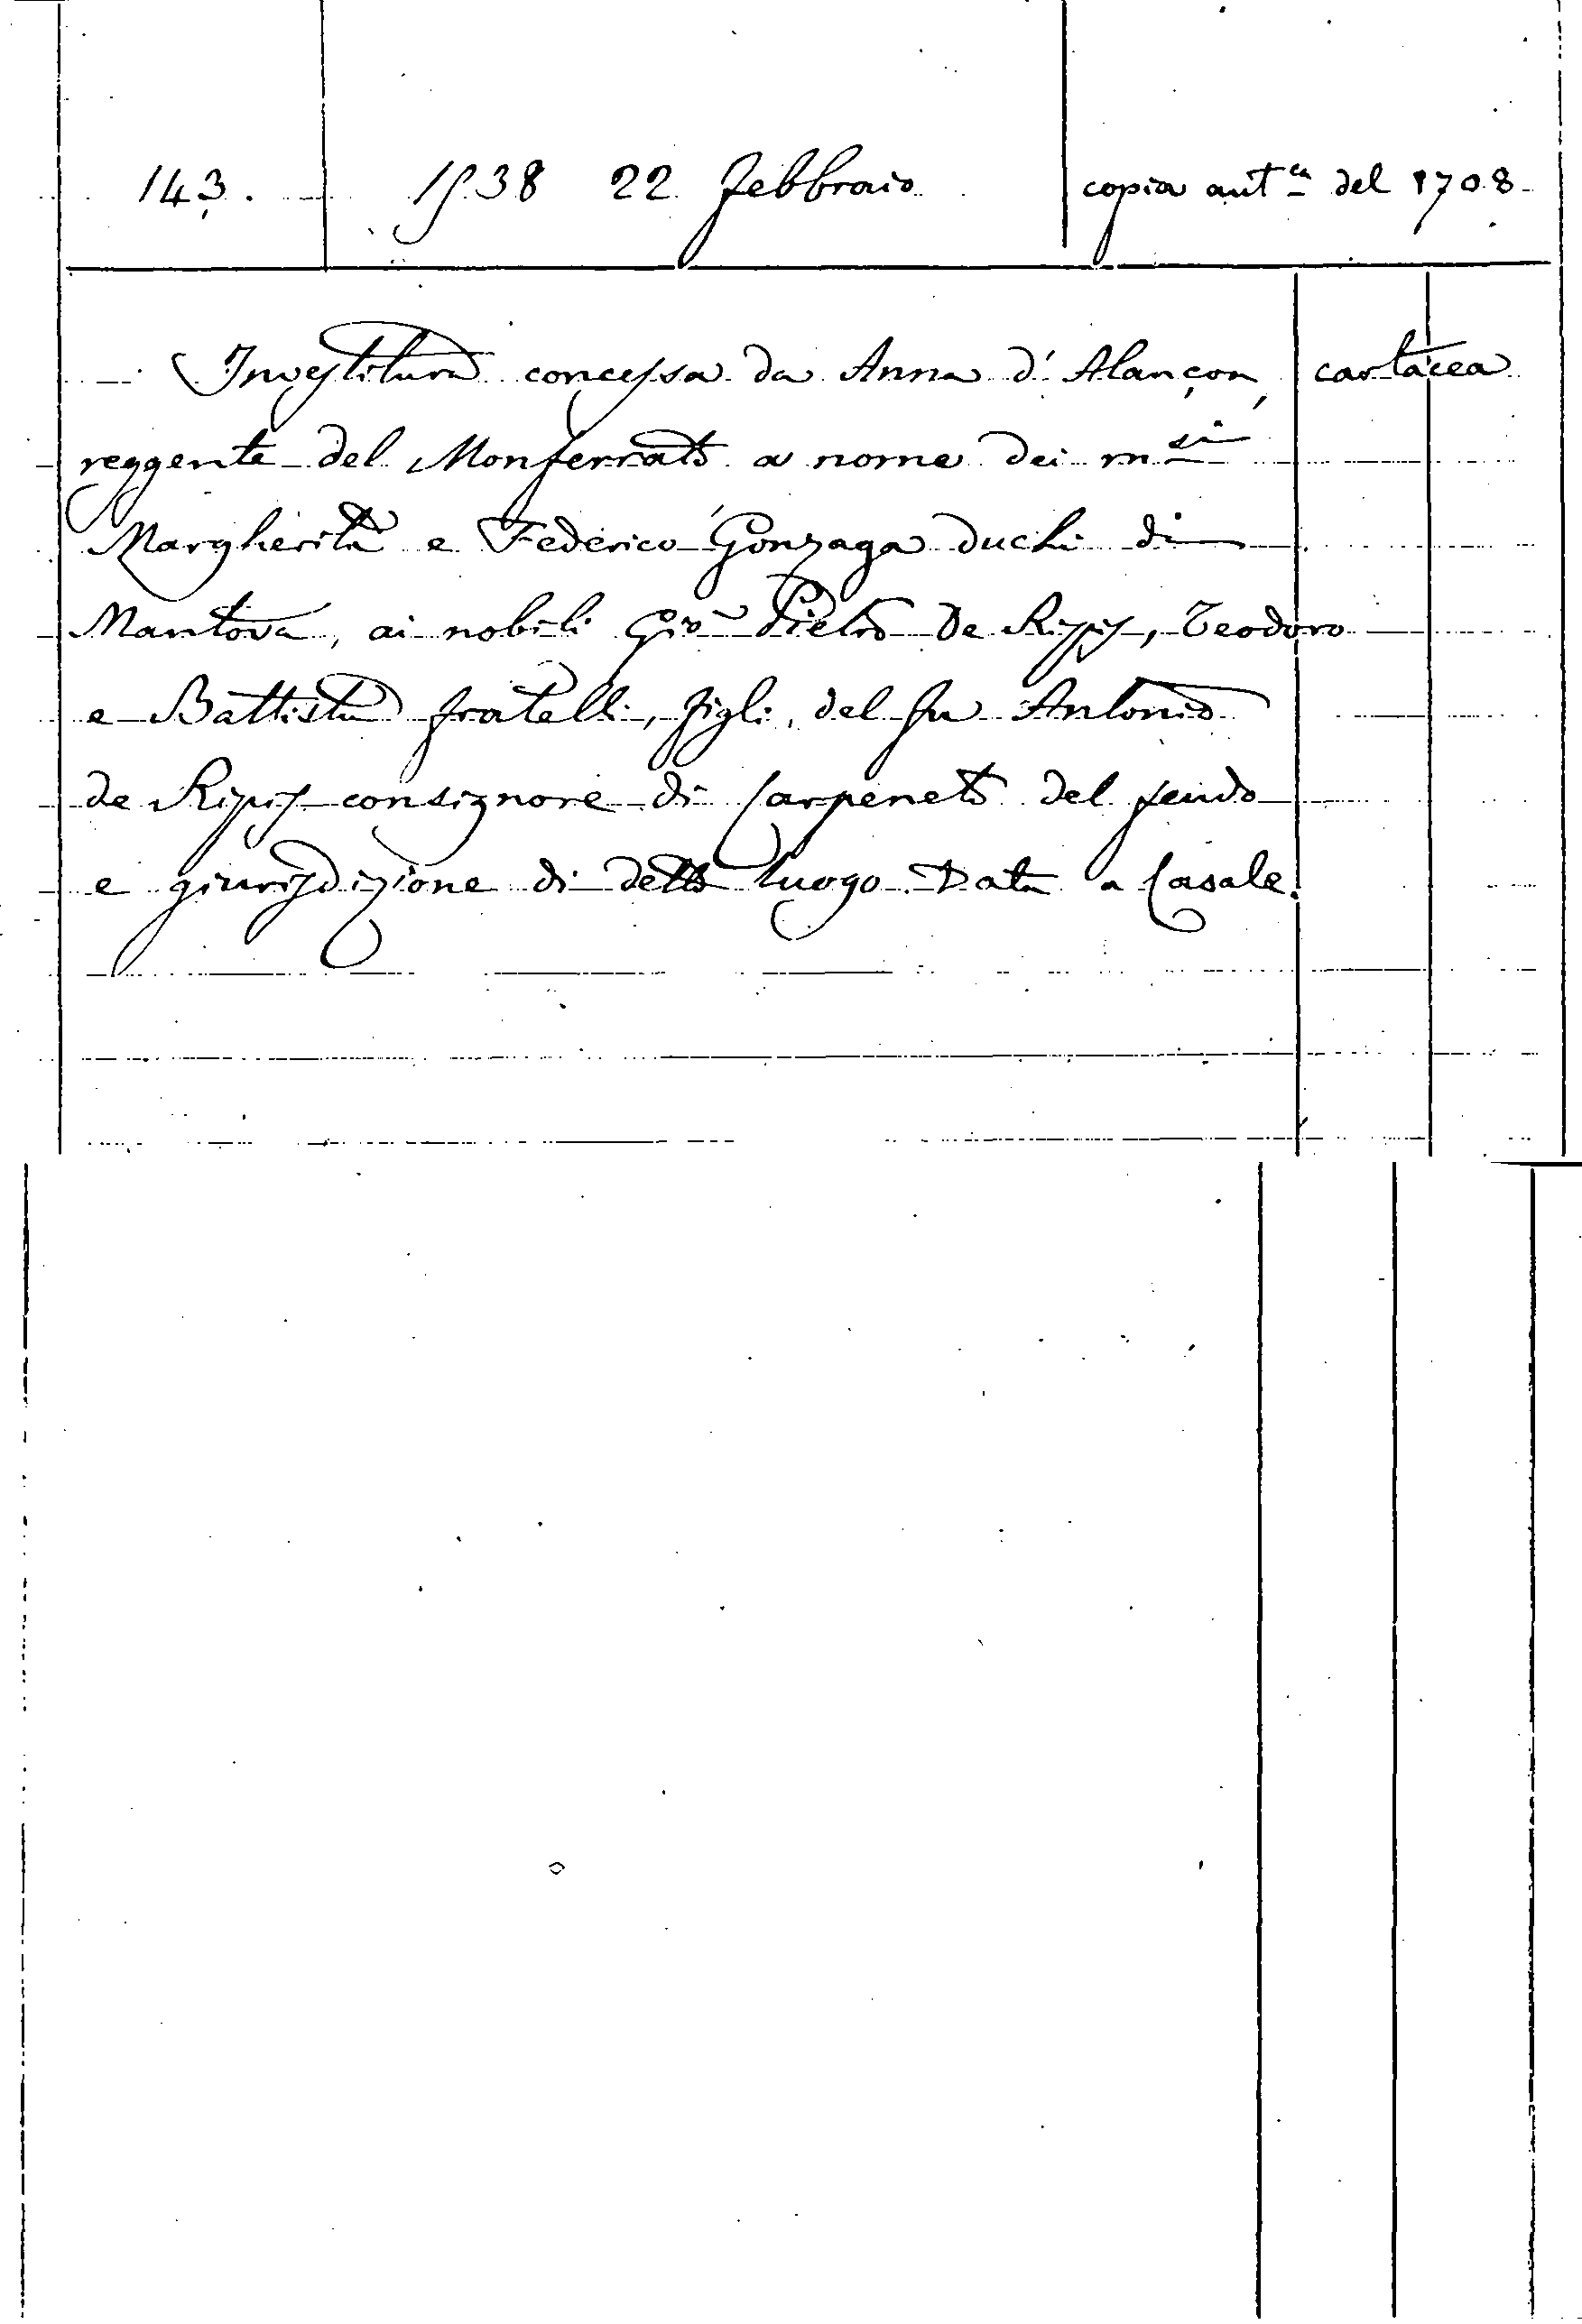 143. 1538 22 Febbraio copia aut.ca del 1708
Investitura concessa da Anna d'Alançon, cartacea
reggente del Monferrato a nome dei m.si
Margherita e Federico Gonzaga duchi di
Mantova, ai nobili Gio Pietro De Ripis, Teodoro
e Battista fratelli, figli del fu Antonio
de Ripis consignore di Carpeneto del feudo
e giurisdizione di detto luogo. Data a Casale.